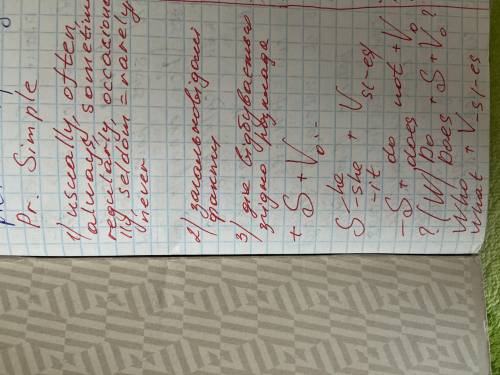 Pr. Simple
1) usually, often
always, sometim
regularly, occasiona
lly seldom = rarely
never
2) загальновідомі
факти
3) дія відбувається
згідно розкладу
+ S + V₀...
S -he -she -it + V -s/-es
- S + do does not + V
? (W) Do Does + S + V₀ ?
Who What + V -s/-es